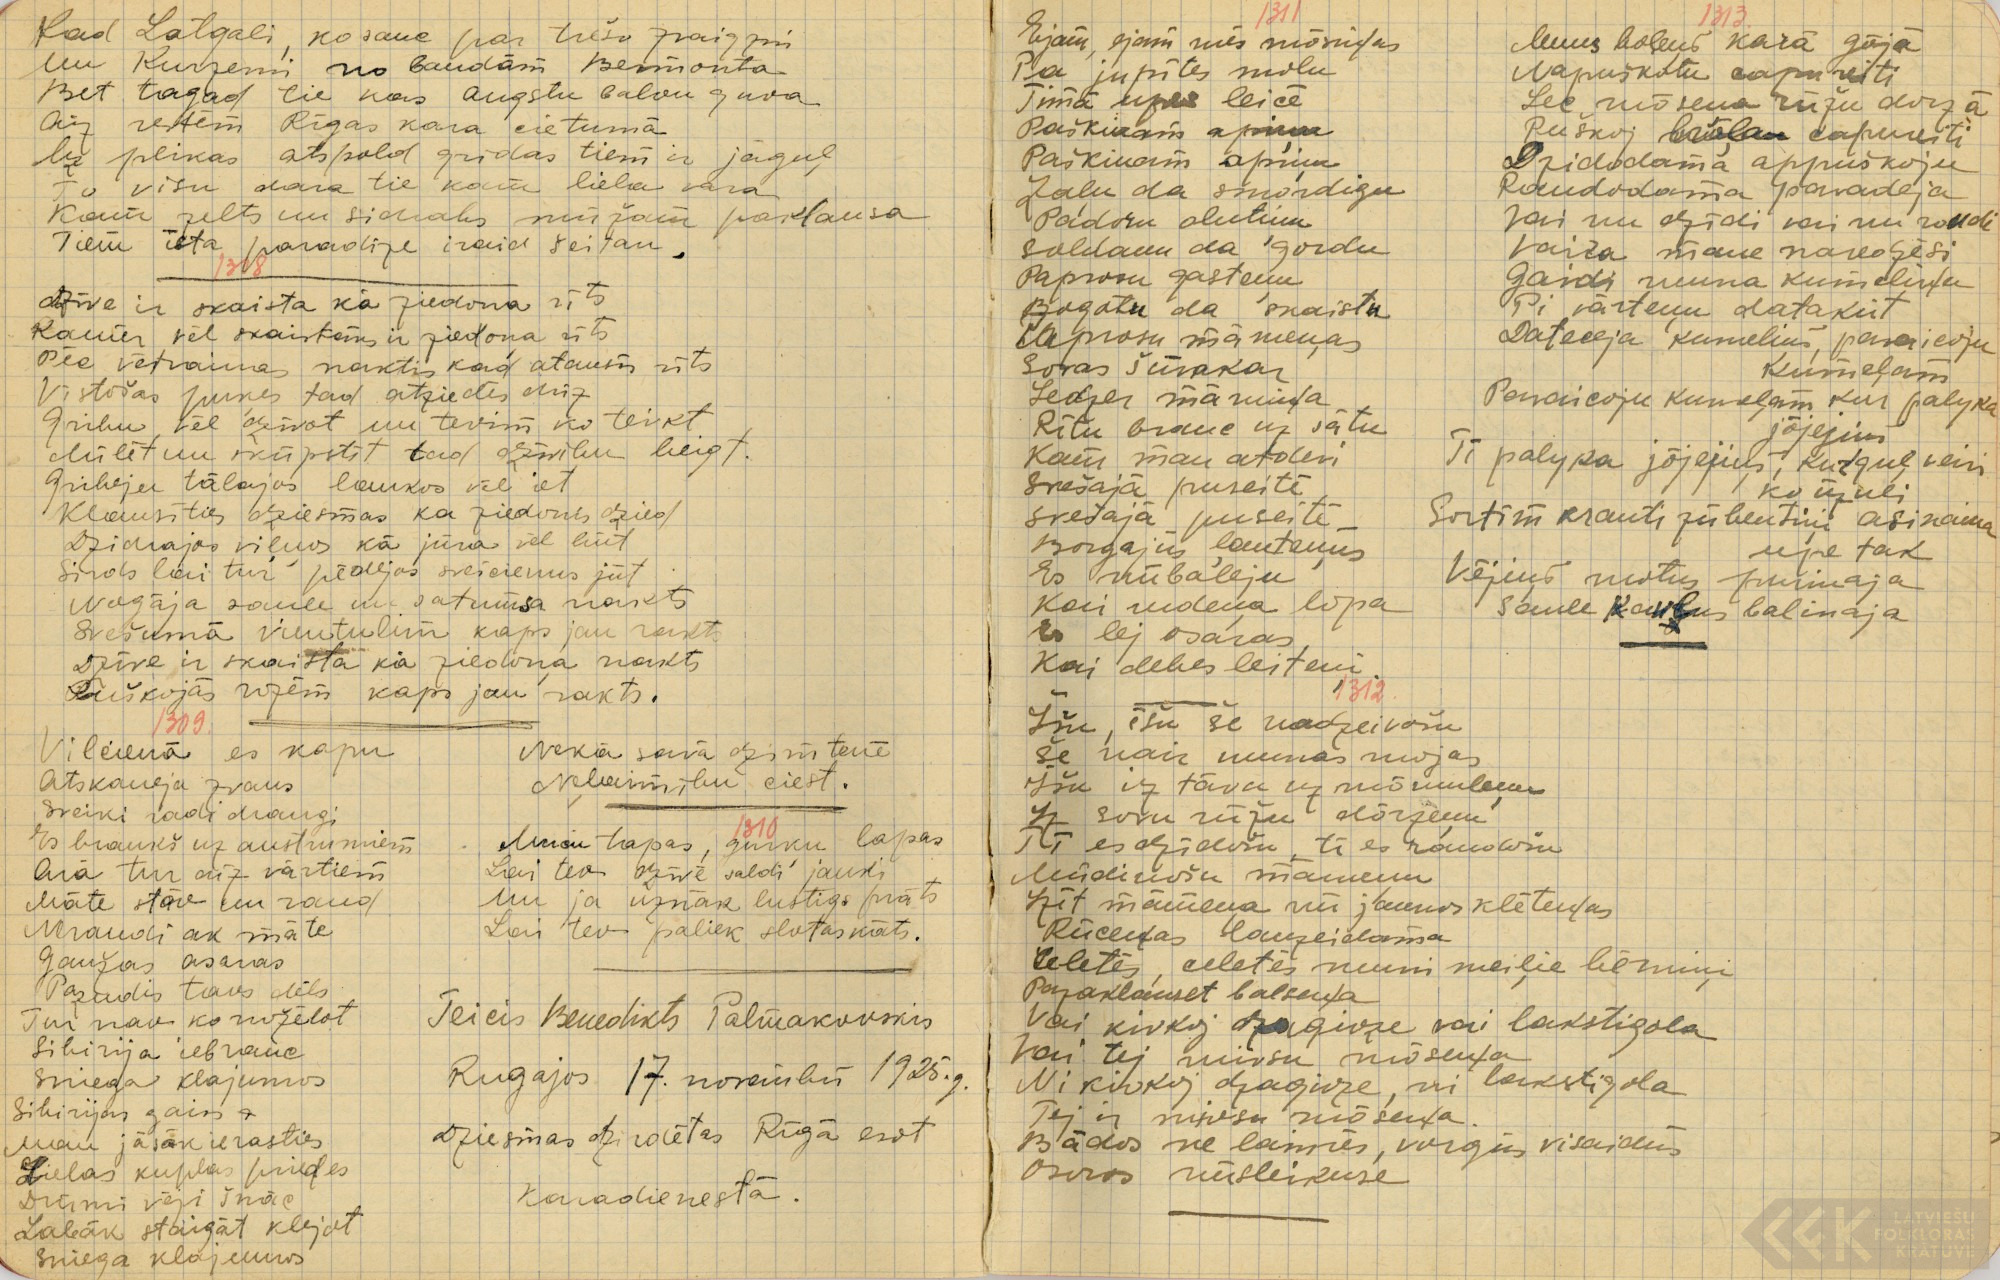 Kad Latgali, kosauc par trešo zvaigzni
Un Kurzemi no bandām Bermonta
Bet tagad tie kas augstu balvu guva
Aiz restēm Rīgas kara cietumā
Uz plikas atspold grīdas tiem ir jāguļ
To visu dara tie kam liela vara
Kam zelts un sidrabs mūžam paklausa
Tiem īsta paradize iraid šeitan.
1308
Dzīve ir skaista kā ziedoņa rīts
Kamēr vēl skaistāks ir ziedoņa rīts
Pēc vētrainas naktis kad ataust rīts
Vistošas puķes tad atziedēs drīz
Gribu vēl dzīvot un tevim ko teikt
Mīlēt un skūpstīt tad dzīvību beigt.
Gribēju tālajos laukos vēl iet
Klausīties dziesmas ka ziedonis dzied
Dzidrajos viļņos kā jūra vēl lūit
Sirds lai tur pēdējos sveicienus jūt
Nogāja saule un satumsa nakts
Svešumā vientulim kaps jau rakts
Dzīve ir skaista kā ziedoņa nakts
Puškojās rozēm kaps jau rakts.
1309.
Vilcienā es kāpu
Atskanēja zvans
Sveiki radi draugi
Es braukš uz austrumiem
Ārā tur aiz vārtiem
Māte stāv un raud
Neraudi ak māte
Gaužas asaras
Pazudis tavs dēls
Tur nav ko nožēlot
Sibirija iebrauc
Sniega klajumos
Sibirijas gaiss
Man jāsāk ierasties
Lielas kuplas priedes
Drūmi vēji šņāc
Labāk staigāt klejot
Sniega klajumos
Nekā savā dzimtenē
Nelaimību ciest.
1310
Mucu tapas, gurķu lapas
Lai tev dzīvē saldi jauki
Un ja uznāk lustīgs prāts
Lai tev paliek slotaskāts.
Teicis Benedikts Palmakovskis
Rugajos 17. novembrī 1925.g.
Dziesmas dzirdētas Rīgā esot
Karadienestā.
1311
Ejam, ejam mēs mōseņas
Pa jupītes molu
Timā upes leicē
Paškinam apiņu
Paškinam apiņu
Zaļu da smōrdigu
Padoru olutiņu
Soldanu da gordu
Paprosu gasteņu
Bogotu da skaistu
Paprosu māmeņas
Sovas šūrakar
Ledzer māmiņa
Rītu brauc uz sātu
Kam man atdevi
Svešajā puseitē
svešajā puseitē
Borgajūs ļauteņūs
Es nūbaleju
Kai rudeņa lopa
Es lej osaras
Kai debes leiteņi
1312.
Īšu, īšu še nadzeivōšu
Še nair munas mojas
Īšu iz tāvu uz mōmuleņu
Iz sovu rūžu dōrzeņu
Tī es dzīdōšu, tī es raudōšu
Mūdinōšu māmeņu
Izīt māmeņa nu jaunos klēteņas
Rūceņas lauzeidama
Celetēs, celetēs muni meiļie bērniņi
Pazaklauset balseņa
Vai kivkoj dzagivze vai lakstigola
Vai tej mivsu mōseņa
Ni kivkoj dzagivze, ni lakstigola
Tej ir mivsu mōseņa.
Bādos ne laimēs, vorgūs visaidūs
Osoros nūsleikuse
1313.
Munus boleņš karā gōjā
Napuškōtu capureiti
Lec mōseņa rūžu dorzā
Puškoj brōļam capureiti
Dzidodamā appuškoju
Raudodama pavadeja
Vai nu dzīdi vai nu roudi
Vaira mane naredzēsi
Gaidi muna kumeliņa
Pi vārteņu datakūt
Dateceja kumeliņš, pavaicoju
Kumeļam
Pavaicoju kumeļam kur palyka
jōjejiņš
Tī palyka jōjejiņš, kur guļ veiri
kō ūzuli
Sortim krauti zūbentiņi asinaiņa
upe tak
Vējiņš motus purinaja
Saule kaulus balinaja
LATVIEŠU
FOLKLORAS
KRĀTUVE